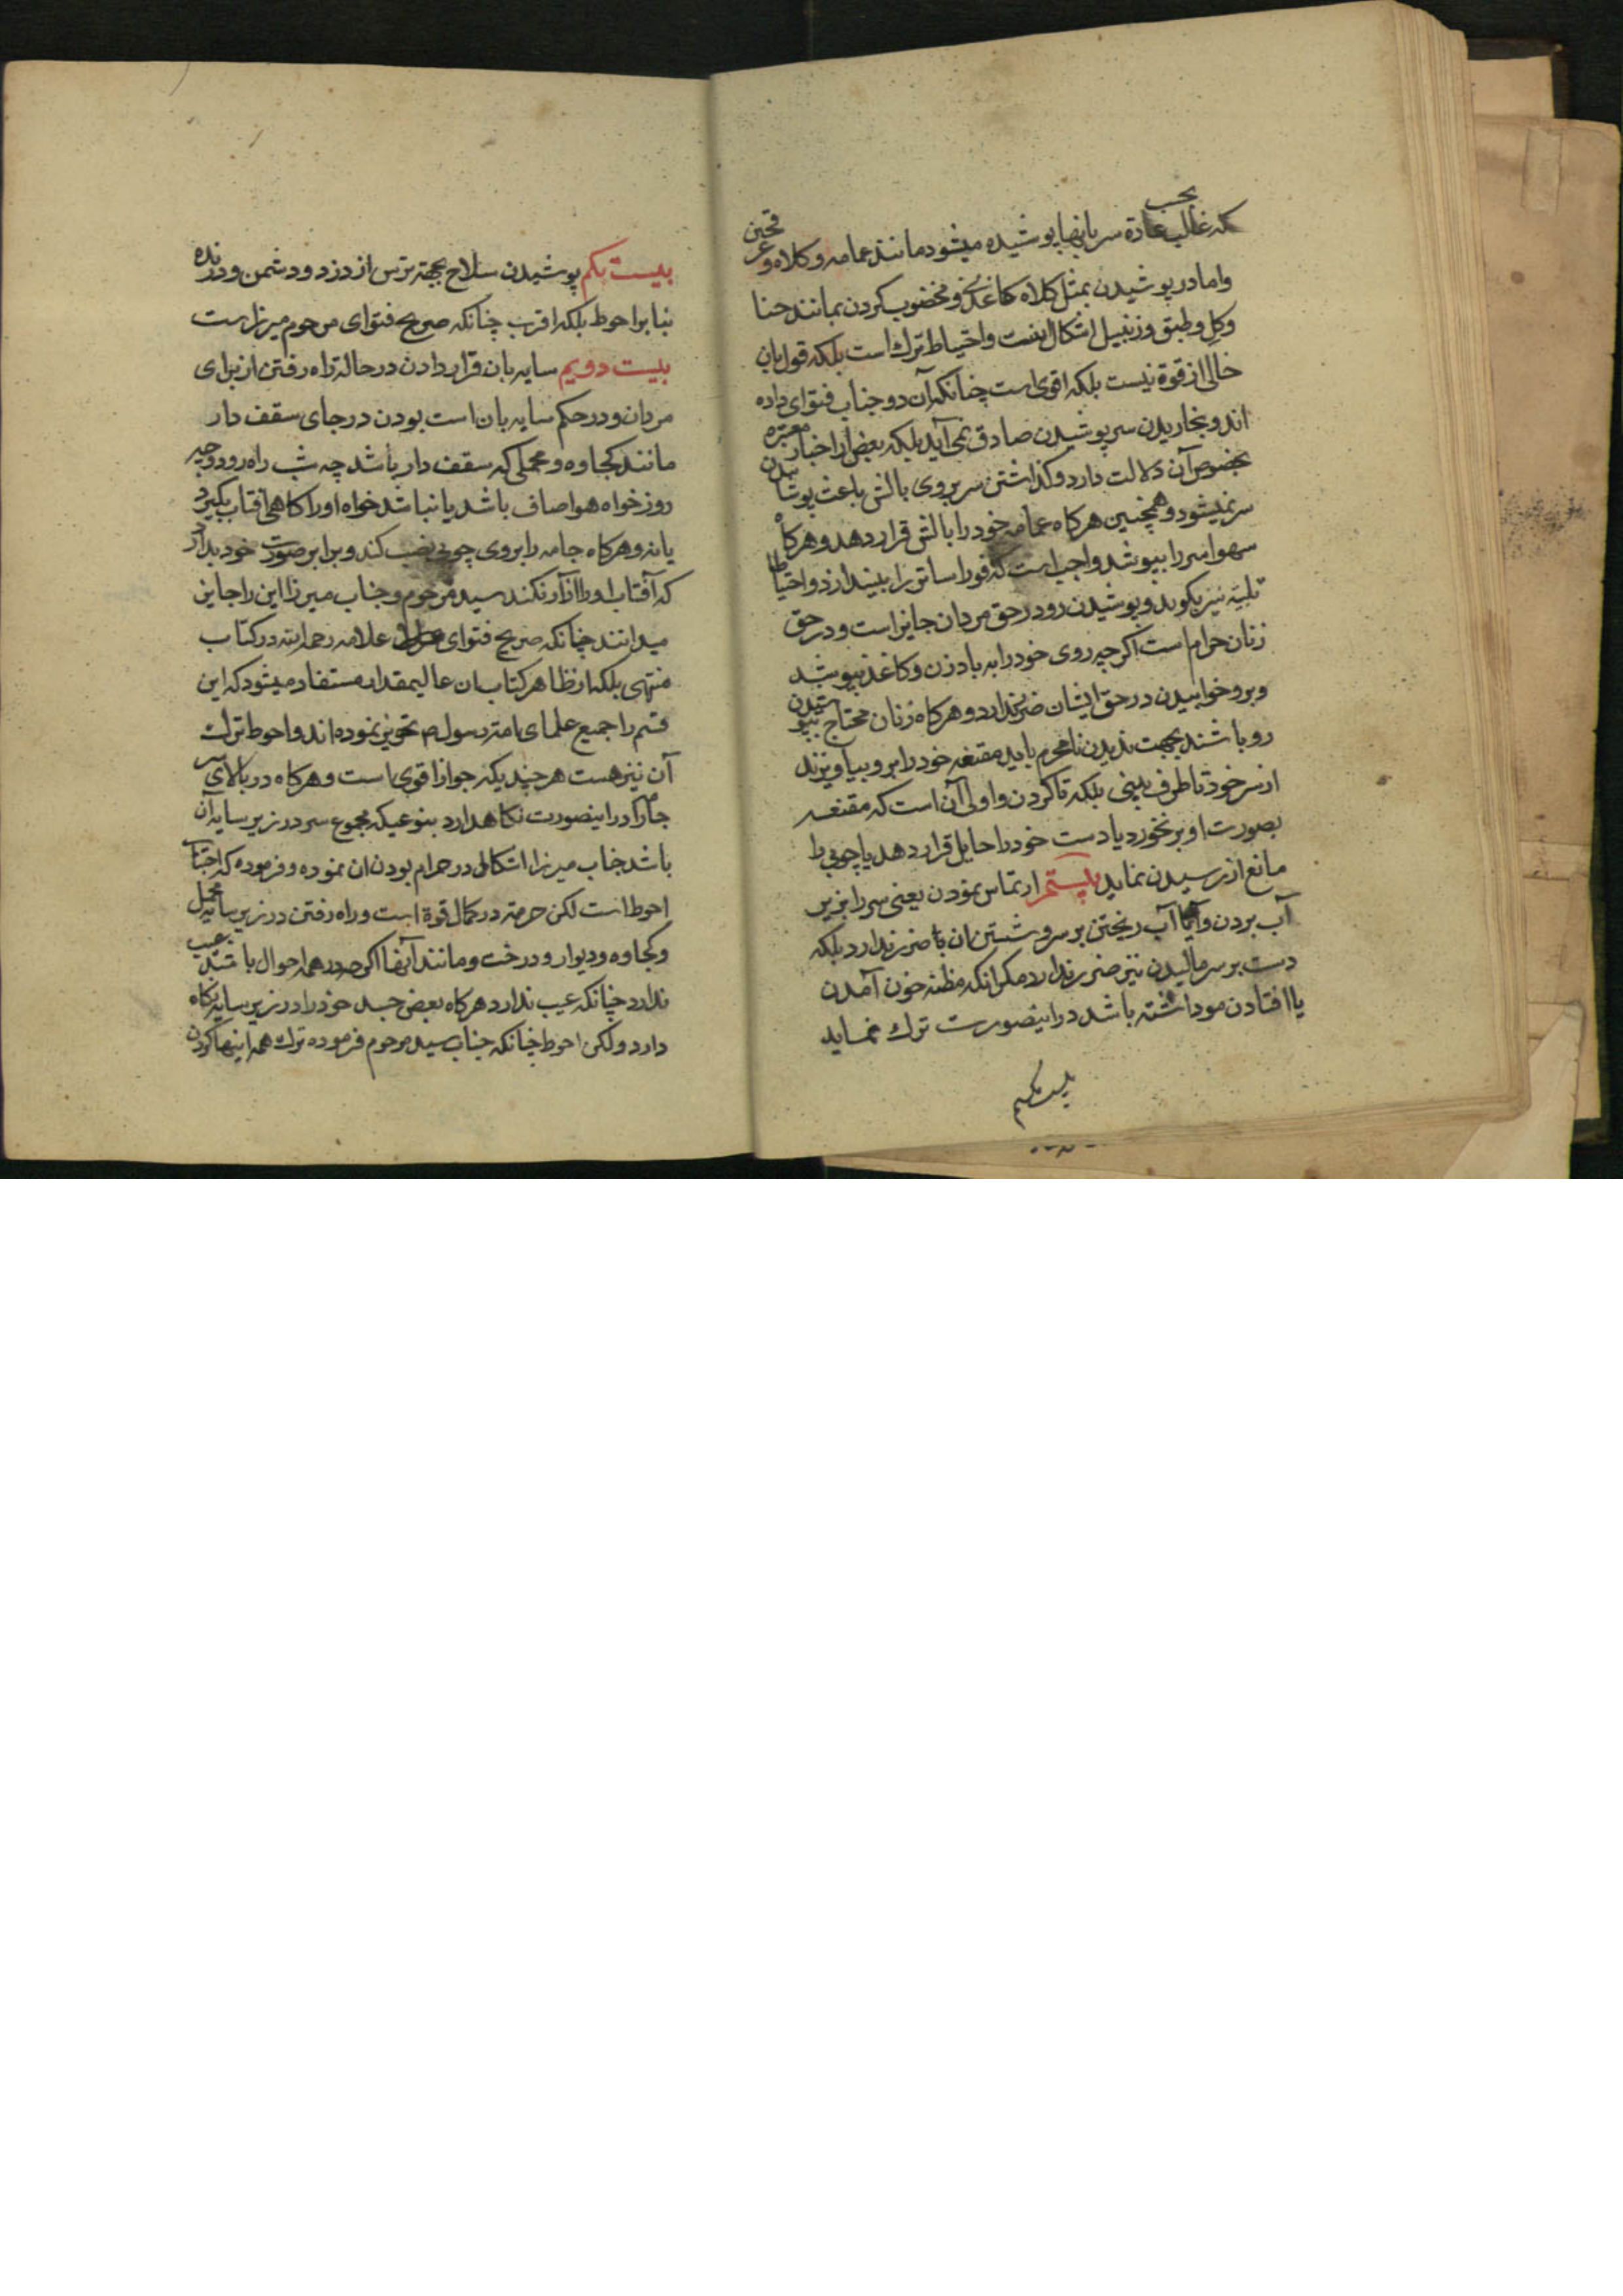 که غالب بحسب عادة سر بانها پوشیده میشود مانند عمامه و کلاه و عرقچین
واما در پوشیدن بمثل کلاه کاغذی و مخضوب کردن بمانند حنا
وکل و طبق و زنبیل اشکال است واحتیاط ترک است بلکه قول بان
خالی از قوة نیست بلکه اقوی است چنانکه آن دو جناب فتوای داده
اند و بخاریدن سر پوشیدن صادق نمی آید بلکه بعض از اخبار معتبره
بخصوص آن دلالت دارد و کذاشتن سر بروی بالش باعث پوشاندن
سر نمیشود و همچنین هرکاه عمامه خود را بالش قرار دهد و هرکاه
سهوا سر را بپوشد واجب است که فورا ساتر را بیندازد و احتیاطا
تلبیه نیز بکوید و پوشیدن رو در حق مردان جایز است و در حق
زنان حرام است اکرچه روی خود را به بادزن و کاغذ بپوشد
و برو خوابیدن در حق ایشان ضرر ندارد و هرکاه زنان محتاج بپوشیدن
رو باشند بجهت ندیدن نامحرم باید مقنعه خود را برو بیاویزند
از سر خود تا طرف بینی بلکه تا کردن و اولی آن است که مقنعه
بصورت او بر نخورد یا دست خود را حایل قرار دهد یا چوبی را
مانع از رسیدن نماید بیستم ارتماس نمودن یعنی سر را بزیر
آب بردن و اما آب ریختن بر سر و شستن ان با ضرر ندارد بلکه
دست بر سر مالیدن نیز ضرر ندارد مکر انکه مظنه خون آمدن
یا افتادن مو داشته باشد در اینصورت ترک نماید
بیست یکم
بیست یکم پوشیدن سلاح بجهة ترس از دزد و دشمن و درنده
بنا بر احوط بلکه اقرب چنانکه صریح فتوای مرحوم میرزا است
بیست دویم سایه بان قرار دادن در حالة راه رفتن از برای
مردان و در حکم سایه بان است بودن در جای سقف دار
مانند کجاوه و محملی که سقف دار باشد چه شب راه رود و چه
روز خواه هوا صاف باشد یا نباشد خواه او را کاهی افتاب بکیرد
یا نه و هرکاه جامه را بروی چوبی نصب کند و برابر صورت خود بدارد
که آفتاب او را ازار نکند سید مرحوم و جناب میرزا این را جایز
میدانند چنانکه صریح فتوای علامه رحمه الله در کتاب
منتهی بلکه از ظاهر کتاب ان عالیمقدار مستفاد میشود که این
قسم را جمیع علمای امة رسول ص تجویز نموده اند و احوط ترک
آن نیز هست هر چند یکه جواز اقوی است و هرکاه در بالای سر
جامه را در اینصورت نکاهدارد بنوعیکه مجموع سر در زیر سایه آن
باشد جناب میرزا اشکالی در حرام بودن ان نموده و فرموده که اجتناب
احوط است لکن حرمة در کمال قوة است و راه رفتن در زیر سایه محمل
و کجاوه و دیوار و درخت و مانند آنها اکرچه در همه احوال باشد عیب
ندارد چنانکه عیب ندارد هرکاه بعض جسد خود را در زیر سایه نکاه
دارد ولکن احوط چنانکه جناب سید مرحوم فرموده ترک همه اینها کردن